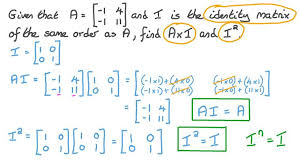 Given that A = [-1 4; -1 11] and I is the identity matrix
of the same order as A, find A×I and I²
I = [1 0; 0 1]
AI = [-1 4; -1 11] [1 0; 0 1] = [(-1×1)+(4×0) (-1×0)+(4×1); (-1×1)+(11×0) (-1×0)+(11×1)]
= [-1 4; -1 11] AI = A
I² = [1 0; 0 1] [1 0; 0 1] = [1 0; 0 1] I² = I Iⁿ = I